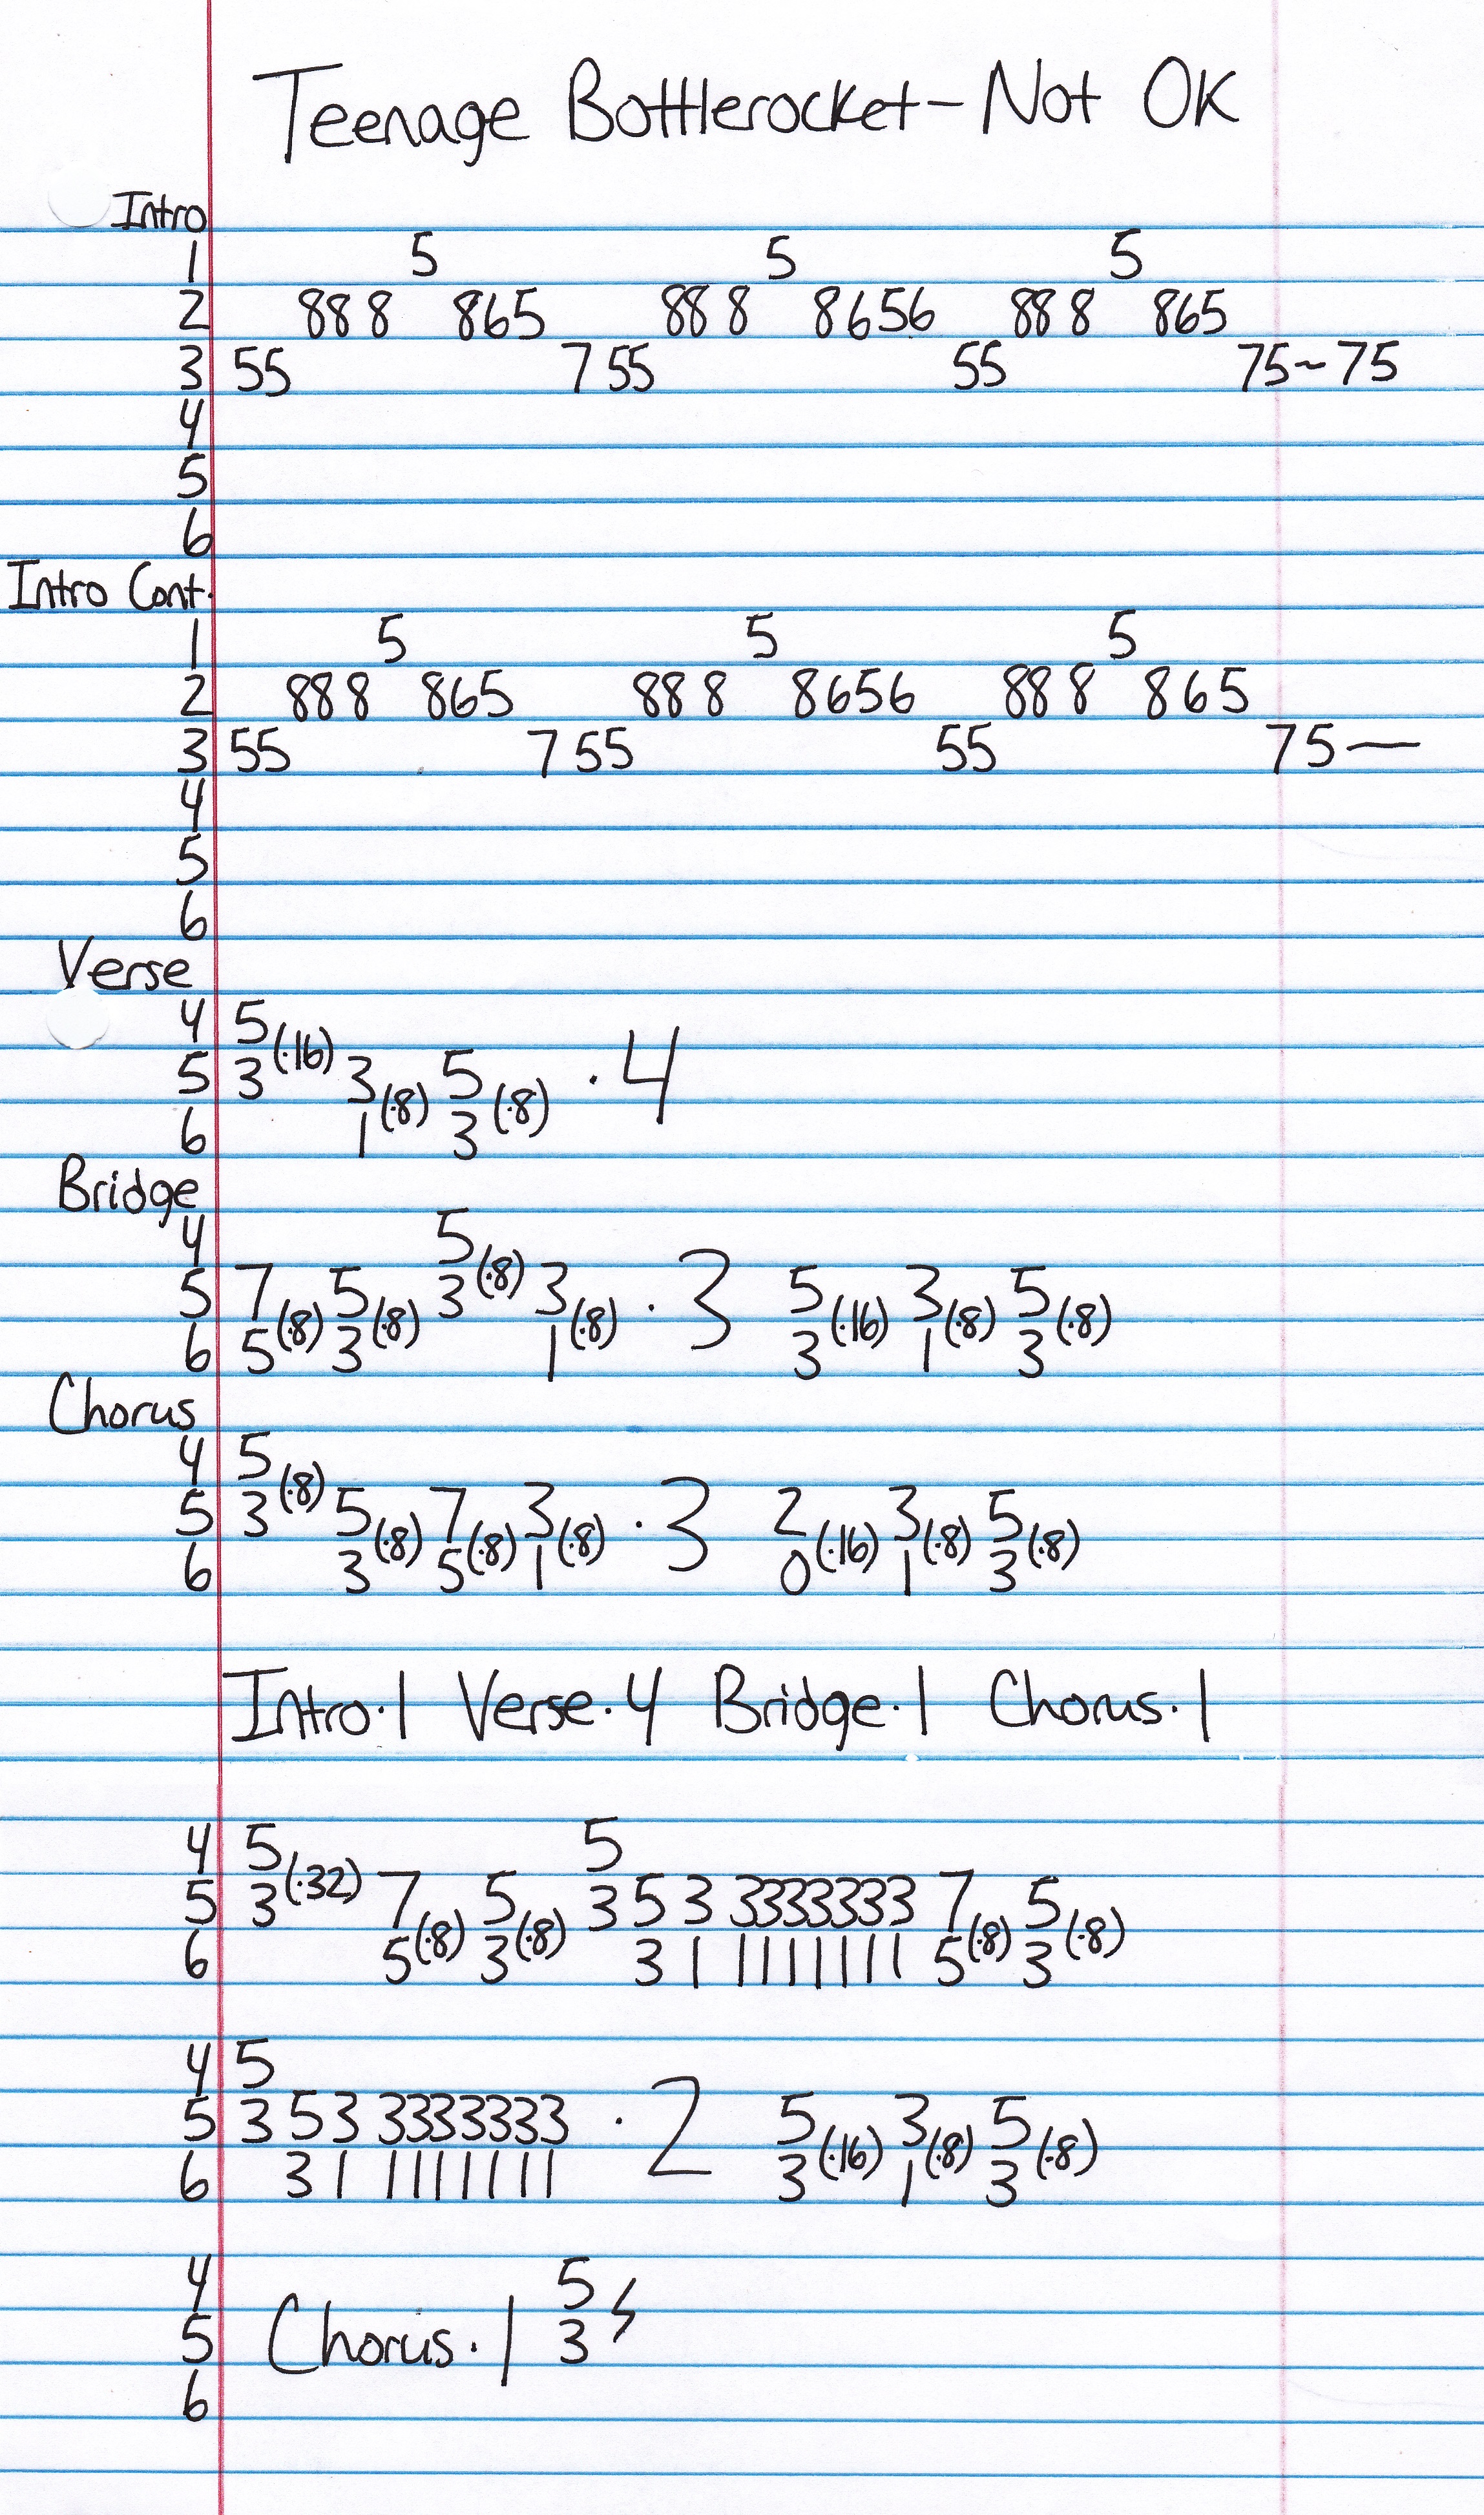 Teenage Bottlerocket - Not OK
Intro
1 5 5 5
2 888 865 888 8656 888 865
3 55 755 55 75~75
4
5
6
Intro Cont.
1 5 5 5
2 888 865 888 8656 888 865
3 55 755 55 75—
4
5
6
Verse
4 5
5 3(·16) 3 5 ·4
6 1(·8) 3(·8)
Bridge
4 5
5 7 5 3(·8) 3 ·3 5 3 5
6 5(·8) 3(·8) 1(·8) 3(·16) 1(·8) 3(·8)
Chorus
4 5
5 3(·8) 5 7 3 ·3 2 3 5
6 3(·8) 5(·8) 1(·8) 0(·16) 1(·8) 3(·8)
Intro·1 Verse·4 Bridge·1 Chorus·1
4 5 5
5 3(·32) 7 5 3 5 3 3333333 7 5
6 5(·8) 3(·8) 3 1 1111111 5(·8) 3(·8)
4 5
5 3 53 3333333 ·2 5 3 5
6 3 1 1111111 3(·16) 1(·8) 3(·8)
4 5
5 Chorus·1 3
6